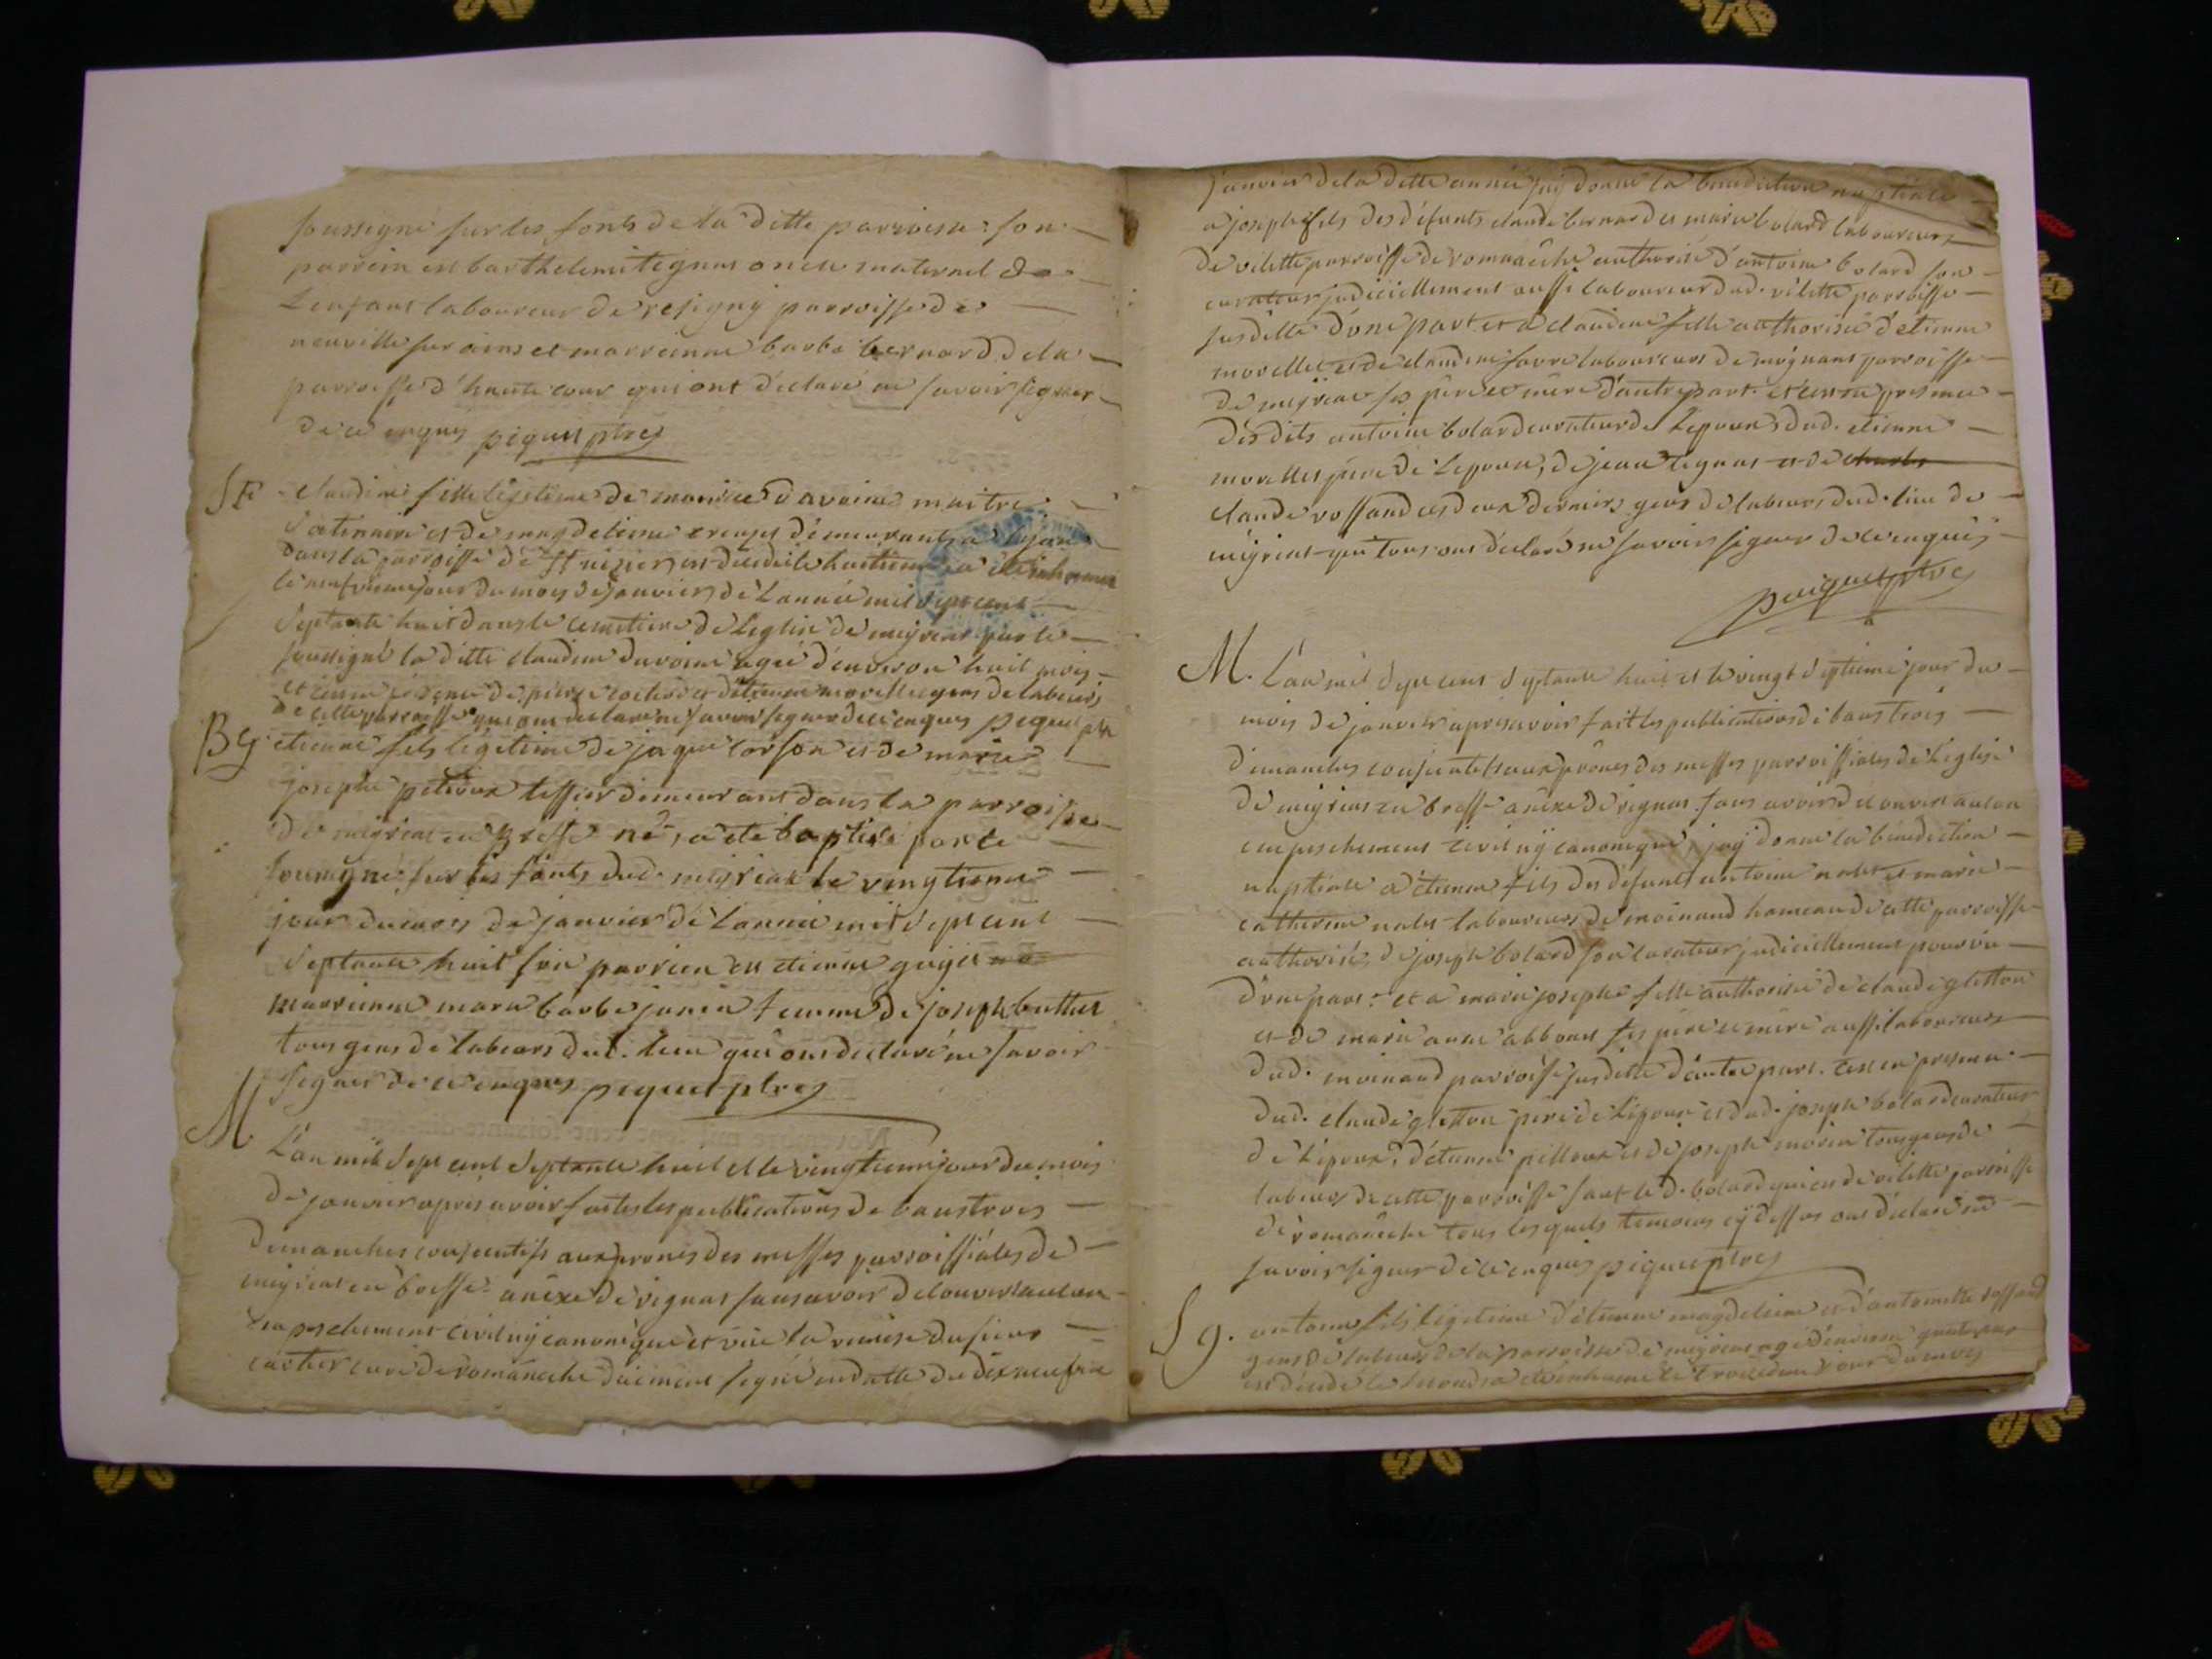 soussigné sur les fonts de la ditte parroisse: son
parrein est barthelemi tignas oncle maternel de
L'enfant laboureur de resigny parroisse de
neuville sur ains et marreinne barbe bernard de la
parroisse d'haute cour qui ont déclaré ne savoir signer
de ce enquis piquet ptre
SF claudine fille légitime de maurice davoine maitre
et de magdeleine demeurants a
dans la parroisse de St nizier est décédée le huitieme a été inhumée
le neufvieme jour du mois de janvier de L'année mil sept cent
septante huit dans le cemetiere de L'eglise de meyriat par le
soussigné la ditte claudine davoine agée d'environ huit mois
et en presence de pierre et d'etienne morellet gens de labeurs
de cette parroisse qui ont declaré ne savoir signer de ce enquis piquet ptre
BG etienne fils légitime de jaque corson et de marie
josephe petioux tessier demeurant dans la parroisse
de meyriat en Bresse né, a eté baptisé par le
soussigné sur les fonts dud. meyriat le vingtieme
jour du mois de janvier de L'année mil sept cent
septante huit son parrein est etienne
marreinne marie barbe janin femme de joseph buttet
tous gens de labeurs dud. lieu qui ont declaré ne savoir
signer de ce enquis piquet ptre
M L'an mil sept cent septante huit et le vingtieme jour du mois
de janvier apres avoir fait les publications de bans trois
dimanches consecutifs aux prones des messes parroissiales de
meyriat en bresse anéxe de rignat sans avoir decouvert aucun
empeschement civil ny canonique et vüe la remise du sieur
curé de romaneche düement signé en datte du dix neuf
janvier de la ditte année j'ay donné la benediction nuptiale
a joseph fils des défunts claude bernard et marie bolard laboureurs
de vilette parroisse de romaneche authorisé d'antoine bolard son
curateur judiciellement aussi laboureur dud. vilette parroisse
susditte d'une part et a claudine fille authorisée d'etienne
morellet et de claudine favre laboureurs de moignans parroisse
de meyriat ses pere et mere d'autre part. et c'est en presence
des dits antoine bolard curateur de L'epoux dud. etienne
morellet pere de L'epouse, de jean tignat et de charles
claude rossand ces deux derniers gens de labeurs dud. lieu de
meyriat qui tous ont declaré ne savoir signer de ce enquis
piquet ptre
M. L'an mil sept cent septante huit et le vingt septieme jour du
mois de janvier apres avoir fait les publications de bans trois
dimanches consecutifs aux prônes des messes parroissiales de L'eglise
de meyriat en bresse anéxe de rignat sans avoir decouvert aucun
empeschement civil ny canonique, j'ay donné la benediction
nuptiale a etienne fils des defunts antoine nalet et marie
catherine nalet laboureurs de moinand hameau de cette parroisse
authorisé de joseph bolard son curateur judiciellement pourvu
d'une part: et a marie josephe fille authorisée de claude gletton
et de marie anne abbonet ses pere et mere aussi laboureurs
dud. moinand parroisse susditte d'autre part. c'est en presence
dud. claude gletton pere de L'epouse et dud. joseph bolard curateur
de L'epoux, d'etienne pilloux et de joseph morin tous gens de
labeurs de cette parroisse sauf le d. bolard qui est de vilette parroisse
de romaneche tous lesquels temoins cy dessus ont declaré ne
savoir signer de ce enquis piquet ptre
SG. antoine fils légitime d'etienne magdeleine et d'antoinette rossand
gens de labeurs de la parroisse de meyriat agé d'environ
est décédé le second a été inhumé le troisieme jour du mois